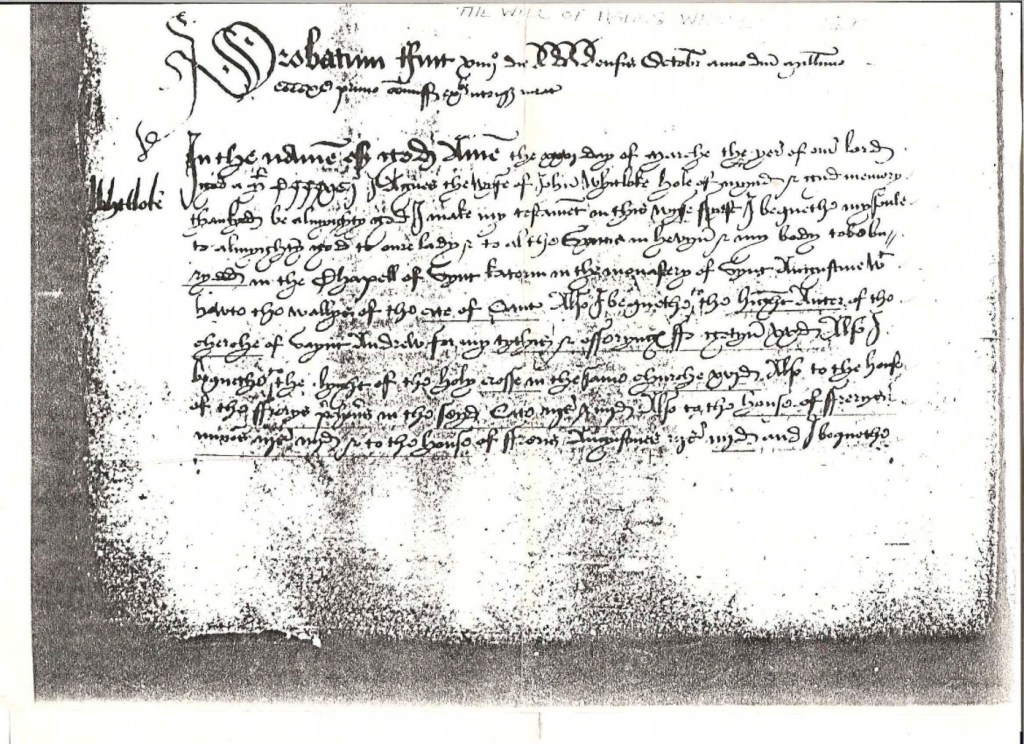 THE WILL OF
Probatum fuit xiiij die Mensis Octobr anno dm Millimo
CCCCxc primo
Whitloke
In the name of god Amen the xxvj day of Marche the yere of oure lord
god a m CCCCxcj I Agnes the wife of John Whitloke hole of mynd & gud memory
thankyd be almighty god I make my testament on this wise furst I bequethe my soule
to almyghty god to oure lady & to al the Synts in hevyn & my body to be bu//
ryedd in the Chapell of Synt Kateryn in the monastery of Synt Augustine
the wallys of the cite of Cant Also I bequethe to the hyght Auter of the
cherche of Saynt Andrew for my tythys & offeryngs xxd Also I
bequethe to the lyght of the holy crosse in the same churche xvjd Also to the house
of the ffrerys in the seyd Cite iijs iiijd Also to the house of ffrerys
iijs iiijd & to the house of Augustines iijs iiijd and I bequethe